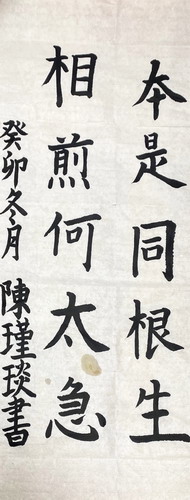 本是同根生
相煎何太急
癸卯冬月 陳瑾琰書